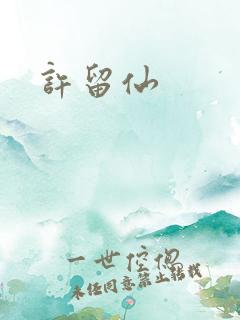 許留仙
一世倥偬
未经同意禁止转载